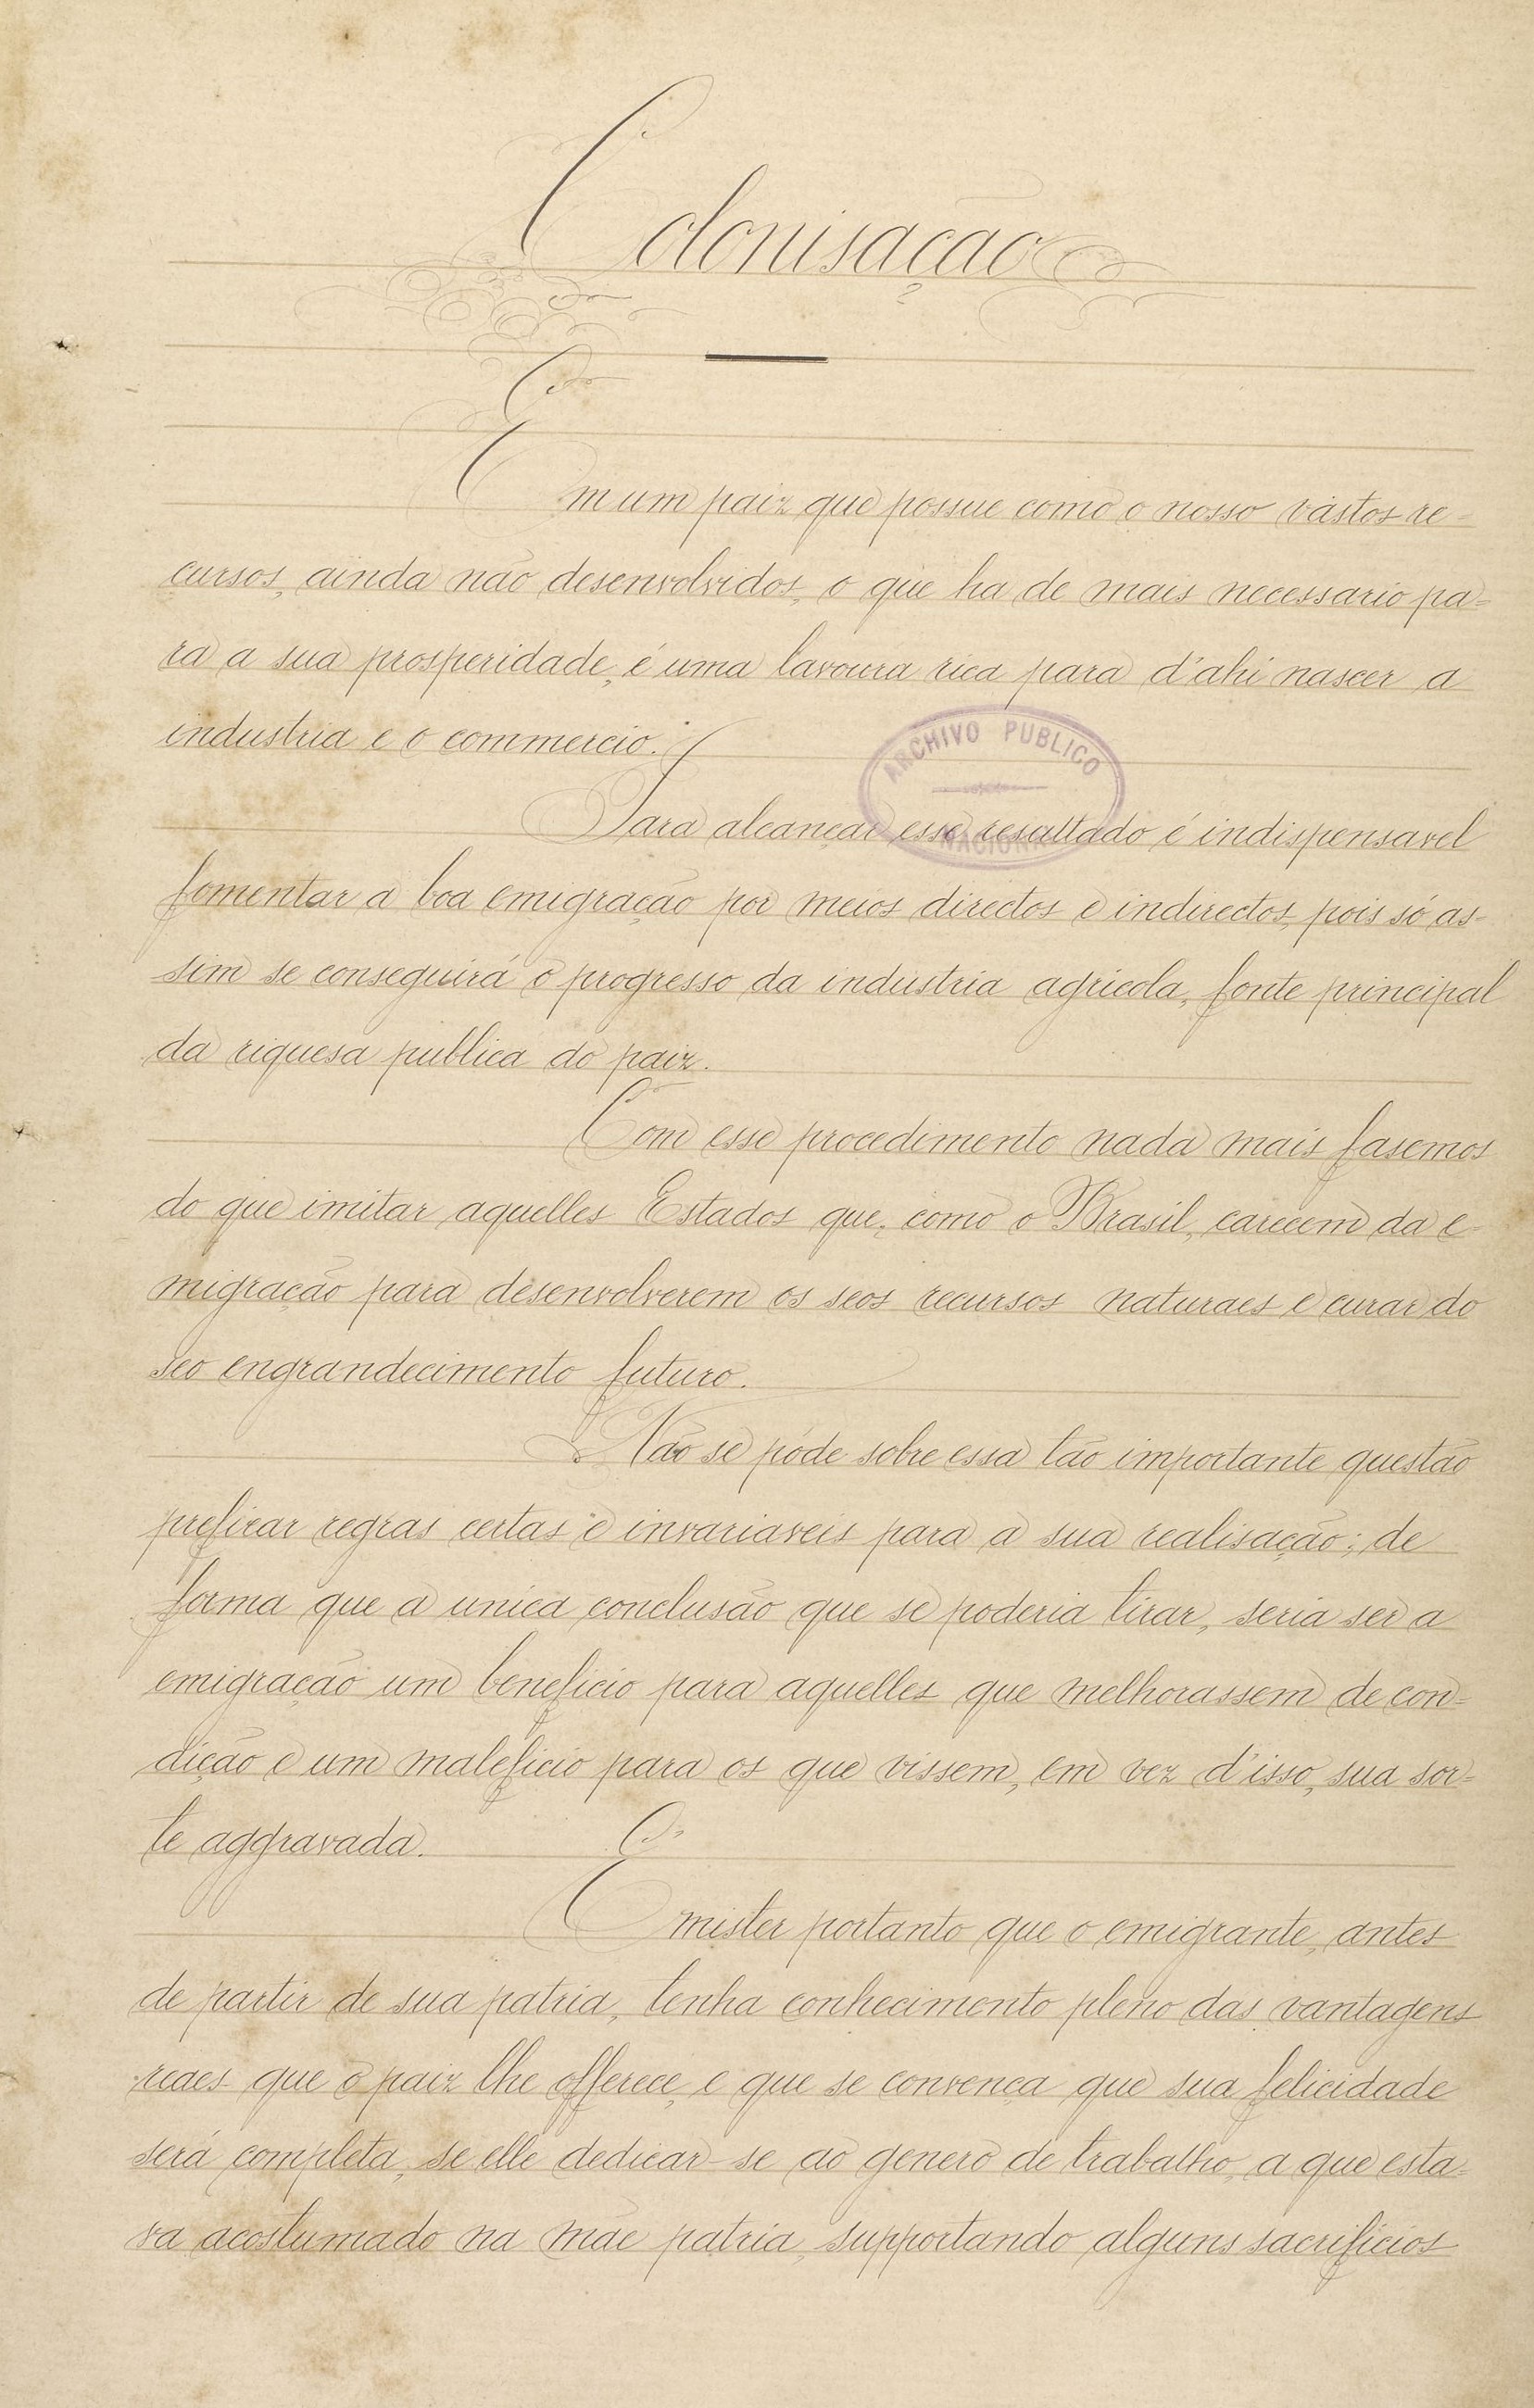 Colonisação
Em um paiz que possue como o nosso vastos re=
cursos, ainda não desenvolvidos, o que ha de mais necessario pa=
ra a sua prosperidade, é uma lavoura rica para d'ahi nascer a
industria e o commercio.
ARCHIVO PUBLICO
NACIONAL
Para alcançar esse resultado é indispensavel
fomentar a boa emigração por meios directos e indirectos, pois só as=
sim se conseguirá o progresso da industria agricola, fonte principal
da riquesa publica do paiz.
Com esse procedimento nada mais fasemos
do que imitar aquelles Estados que, como o Brasil, carecem da e=
migração para desenvolverem os seos recursos naturaes e curar do
seo engrandecimento futuro.
Não se póde sobre essa tão importante questão
prefixar regras certas e invariaveis para a sua realisação; de
forma que a unica conclusão que se poderia tirar, seria ser a
emigração um beneficio para aquelles que melhorassem de con=
dição e um maleficio para os que vissem, em vez d'isso, sua sor=
te aggravada.
E' mister portanto que o emigrante, antes
de partir de sua patria, tenha conhecimento pleno das vantagens
reaes que o paiz lhe offerece, e que se convença que sua felicidade
será completa, se elle dedicar-se ao genero de trabalho, a que esta=
va acostumado na mãe patria, supportando alguns sacrificios